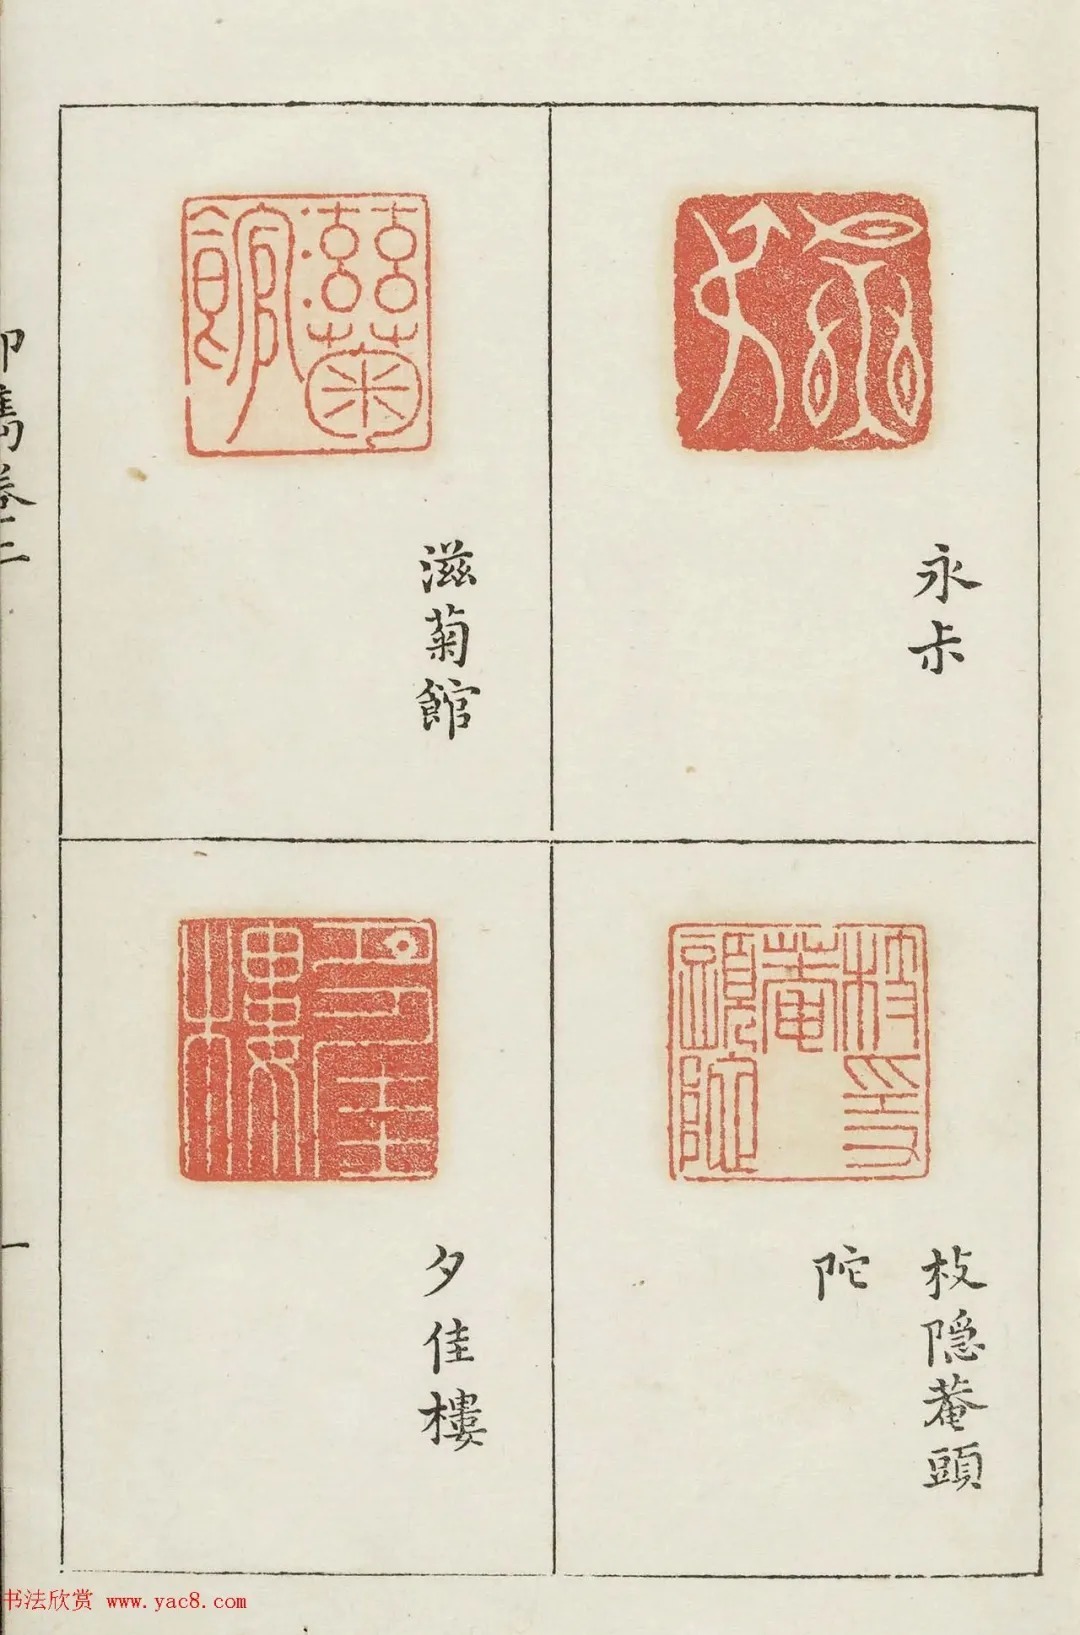 永尗
滋菊館
枝隠菴頭
陀
夕佳樓
印雋卷三
一
书法欣赏 www.yac8.com